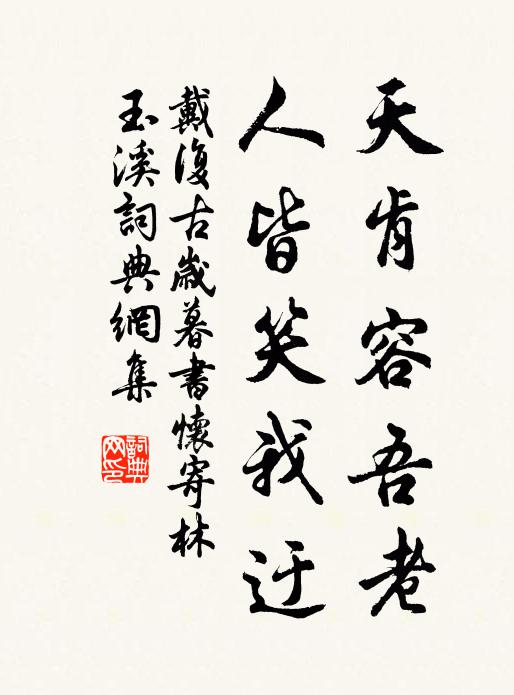 天肯容吾老
人皆笑我迂
戴復古歲暮書懷寄林
玉溪詞典網集
詞典
网印